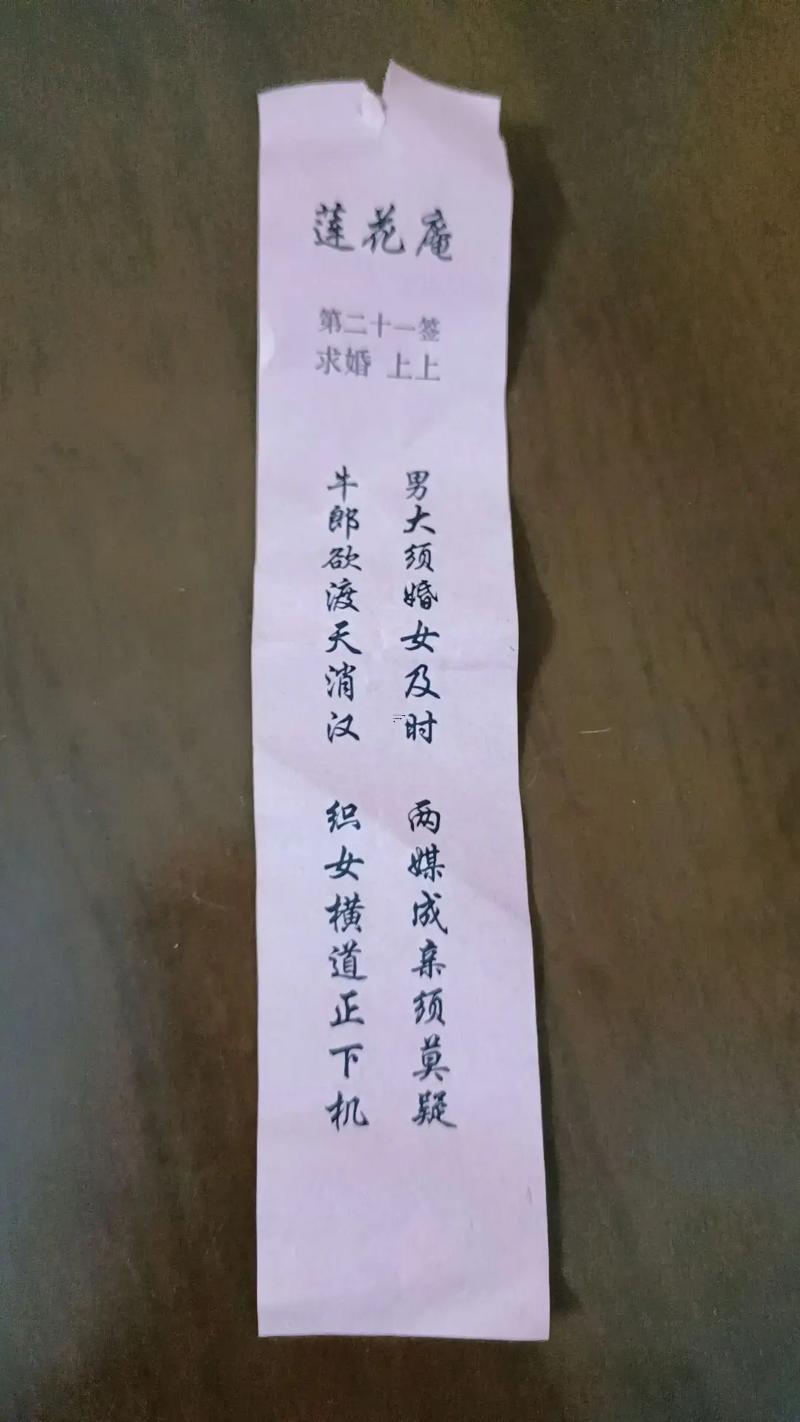 莲花庵
第二十一签
求婚 上上
男大须婚女及时 两媒成亲须莫疑
牛郎欲渡天消汉 织女横道正下机